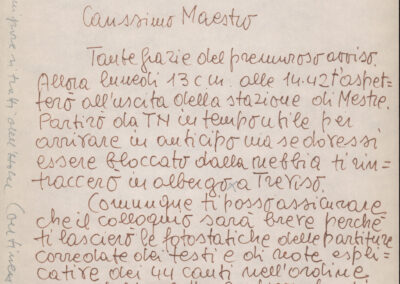 Carissimo Maestro
Tante grazie del premuroso avviso.
Allora lunedì 13 c.m. alle 14.42 t'aspet-
terò all'uscita della stazione di Mestre.
Partirò da TN in tempo utile per
arrivare in anticipo ma se dovessi
essere bloccato dalla nebbia ti rin-
traccerò in albergo a Treviso.
Comunque ti posso assicurare
che il colloquio sarà breve perché
ti lascierò le fotostatiche delle partiture
corredate dei testi e di note espli-
cative dei 44 canti nell'ordine